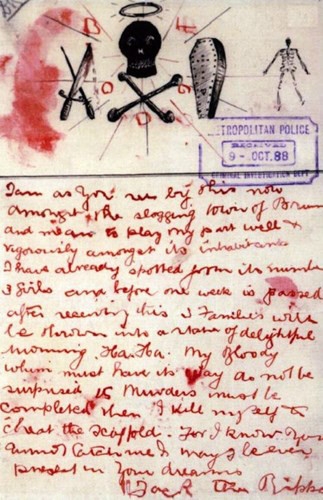 METROPOLITAN POLICE
RECEIVED
9-OCT.88
CRIMINAL INVESTIGATION DEPT
I am as you see by this now
amongst the slogging town of Brum
and mean to play my part well &
vigorously amongst its inhabitants
I have already spotted from its number
3 girls and before one week is passed
after receiving this 3 Families will
be thrown into a state of delightful
mourning. Ha. Ha. My Bloody
whim must have its way do not be
surprised 15 Murders must be
completed then I kill myself to
cheat the scaffold. For I know you
cannot catch me & may I be ever
present in your dreams
Jack the Ripper